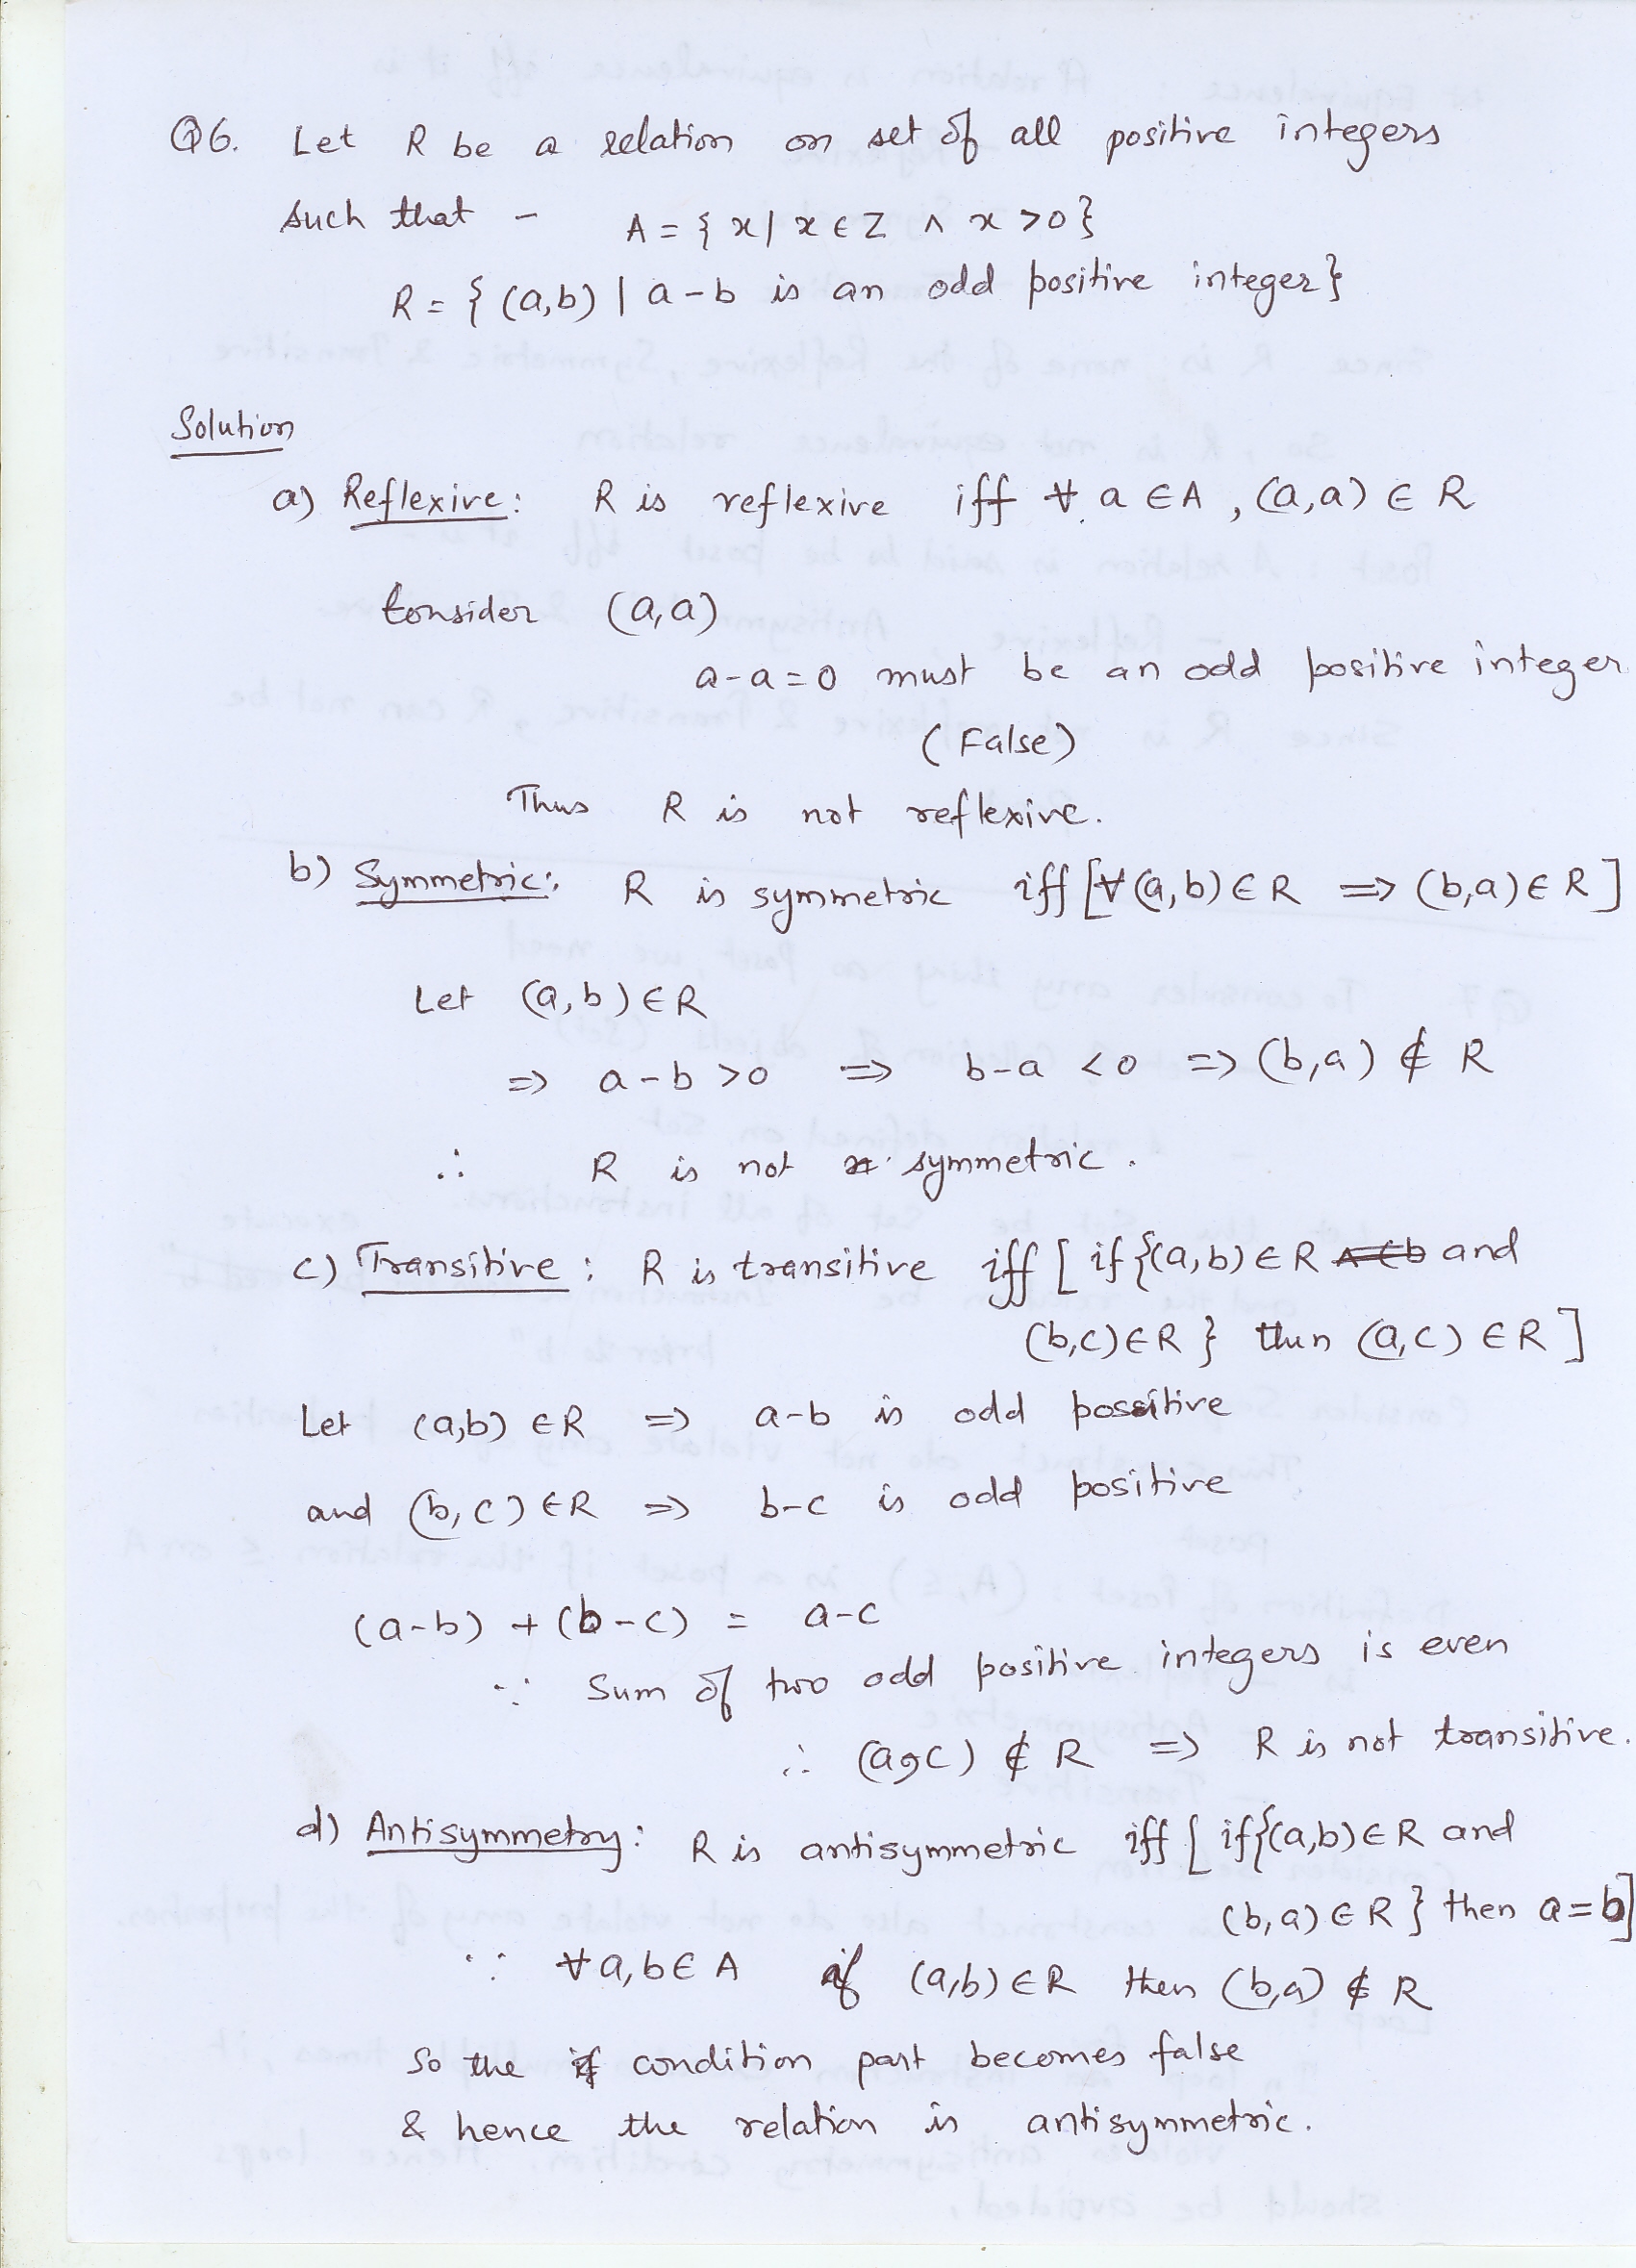 Q6. Let R be a relation on set of all positive integers
such that - A = { x | x ∈ Z ∧ x > 0 }
R = { (a,b) | a - b is an odd positive integer}
Solution
a) Reflexive: R is reflexive iff ∀ a ∈ A , (a,a) ∈ R
Consider (a,a)
a - a = 0 must be an odd positive integer
(False)
Thus R is not reflexive.
b) Symmetric: R is symmetric iff [∀ (a,b) ∈ R => (b,a) ∈ R ]
Let (a,b) ∈ R
=> a - b > 0 => b - a < 0 => (b,a) ∉ R
∴ R is not symmetric.
c) Transitive : R is transitive iff [ if {(a,b) ∈ R and
(b,c) ∈ R } then (a,c) ∈ R ]
Let (a,b) ∈ R => a-b is odd possitive
and (b,c) ∈ R => b-c is odd positive
(a-b) + (b-c) = a-c
∵ Sum of two odd positive integers is even
∴ (a,c) ∉ R => R is not transitive.
d) Antisymmetry: R is antisymmetric iff [ if {(a,b) ∈ R and
(b,a) ∈ R } then a = b]
∵ ∀ a,b ∈ A if (a,b) ∈ R then (b,a) ∉ R
So the if condition part becomes false
& hence the relation is antisymmetric.